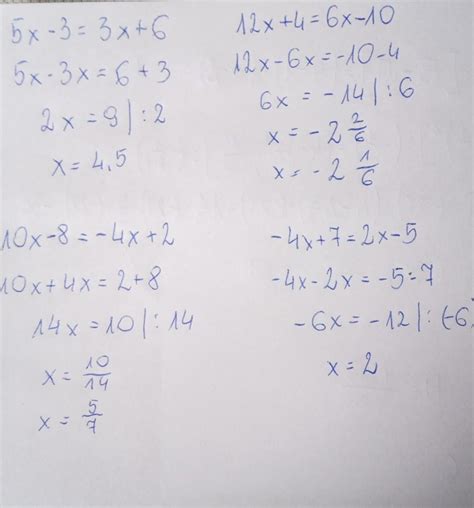 5x-3=3x+6
5x-3x=6+3
2x=9|:2
x=4,5
12x+4=6x-10
12x-6x=-10-4
6x=-14|:6
x=-2 2/6
x=-2 1/6
10x-8=-4x+2
10x+4x=2+8
14x=10|:14
x=10/14
x=5/7
-4x+7=2x-5
-4x-2x=-5-7
-6x=-12|:(-6
x=2